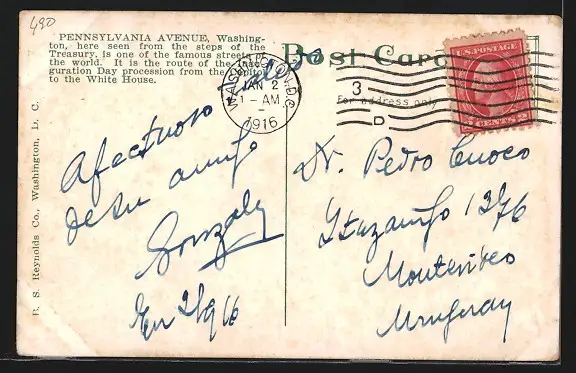 490
PENNSYLVANIA AVENUE, Washing-
ton, here seen from the steps of the
Treasury, is one of the famous streets of
the world. It is the route of the Inau-
guration Day procession from the Capitol
to the White House.
Post Card
For address only
WASHINGTON, D.C.
JAN 2
1-AM
1916
3
D
U.S. POSTAGE
2 CENTS 2
B. S. Reynolds Co., Washington, D. C.
Afectuoso saludo
de su amigo
Gonzalez
En 2/916
Dr. Pedro Cuoco
Ituzaingo 1376
Montevideo
Uruguay